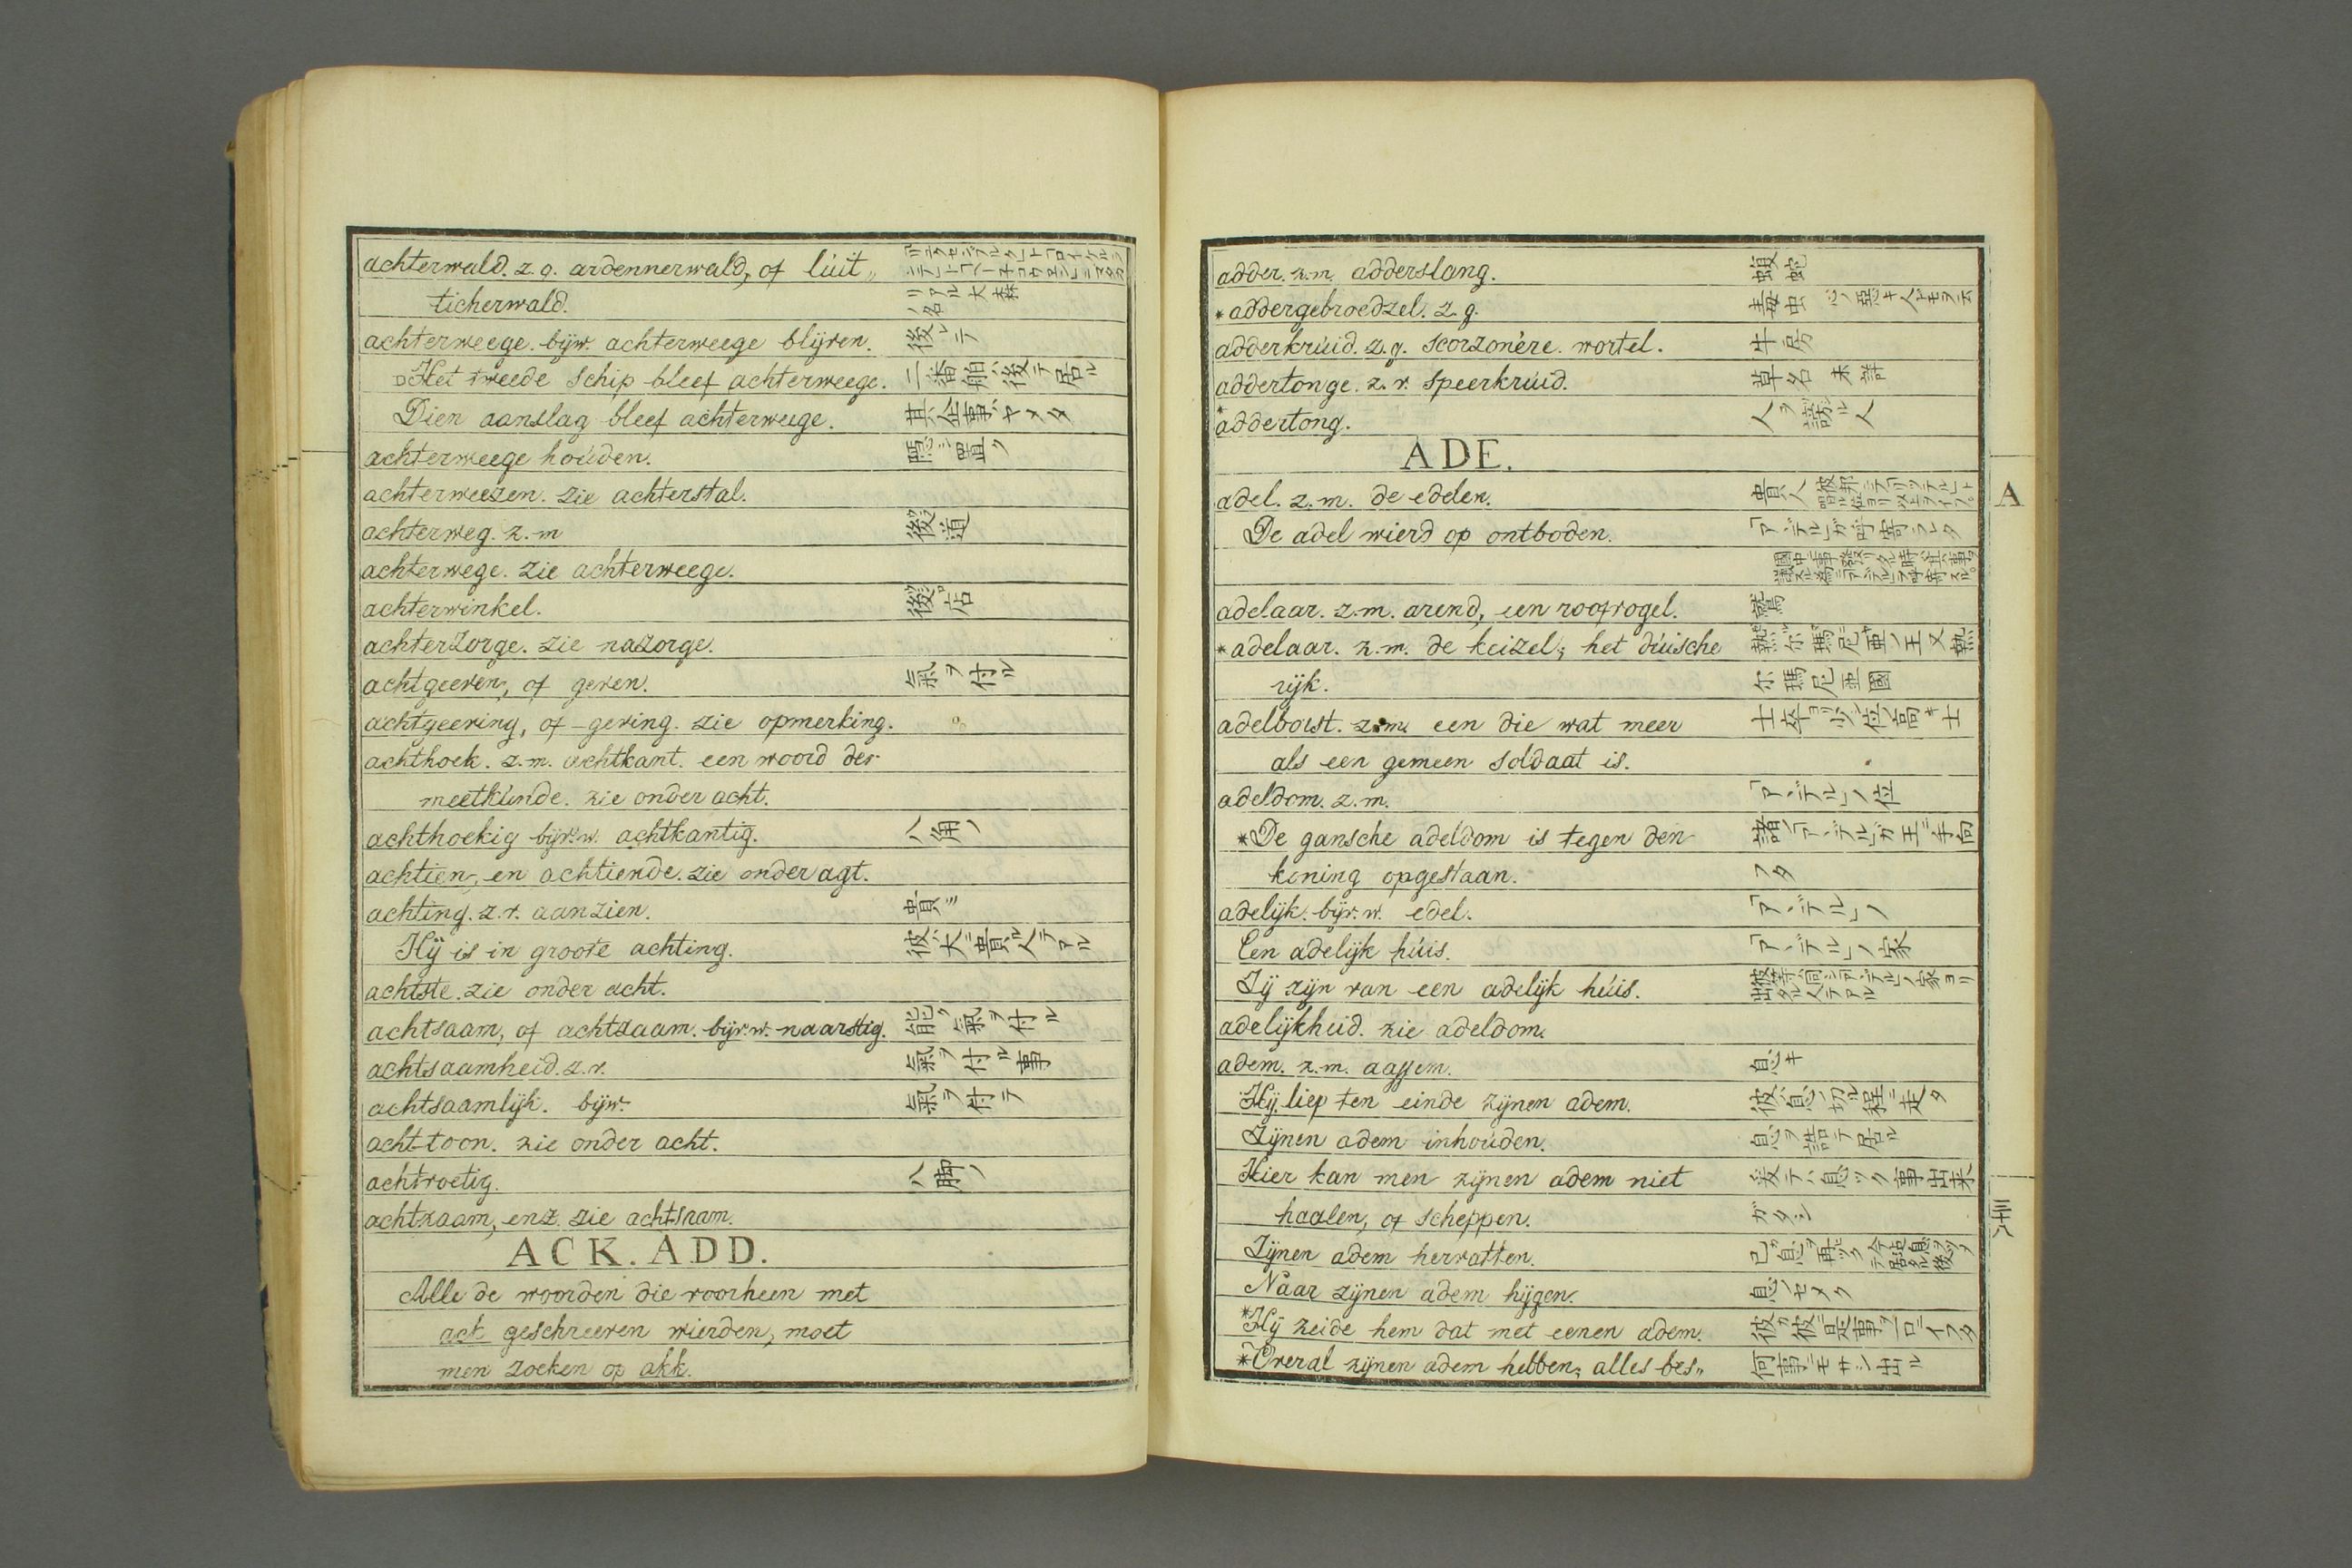 achterwald. z.g. ardennerwald, of lúit„
ticherwald. リアル大森ノ名
achterweege. bijw. achterweege blijven. 後レテ
Het tweede schip bleef achterweege. 二番船ハ後テ居ル
Dien aanslag bleef achterweege. 其企事ハヤメタ
achterweege hoúden. 隠シ置ク
achterweezen. zie achterstal.
achterweg. z.m 後道
achterwege. zie achterweege.
achterwinkel. 後店
achterzorge. zie nazorge.
achtgeeven, of geven. 氣ヲ付ル
achtgeeving, of -geving. zie opmerking.
achthoek. z.m. achtkant. een woord der
meetkúnde. zie onder acht.
achthoekig bijv.w. achtkantig. 八角ノ
achtien, en achtiende. zie onder agt.
achting. z.v. aanzien. 貴ミ
Hij is in groote achting. 彼ハ大ニ貴ル人テアル
achtste. zie onder acht.
achtsaam, of achtzaam. bijv.w. naarstig. 能ク氣ヲ付ル
achtsaamheid. z.v. 氣ヲ付ル事
achtsaamlijk. bijw. 氣ヲ付テ
acht-toon. zie onder acht.
achtvoetig. 八脚ノ
achtzaam, enz. zie achtsaam.
ACK. ADD.
Alle de woorden die voorheen met
ack geschreeven wierden, moet
men zoeken op akk.
adder. z.m. adderslang. 蝮蛇
*addergebroedzel. z.g. 毒虫 心ノ惡キ人ヲモ云
adderkrúid. z.g. scorzonère. wortel. 牛房
addertonge. z.v. speerkrúid. 草名 未詳
*addertong. 人ヲ謗ル人
ADE.
adel. z.m. de edelen. 貴人
A
De adel wierd op ontboden. 「アデル」ガ呼寄ラレタ
adelaar. z.m. arend, een roofvogel. 鷲
*adelaar. z.m. de keizel; het dúische 熱尓瑪尼亜ノ王又熱
rijk. 尓瑪尼亜國
adelborst. z.m. een die wat meer 士卒ヨリ少シ位ノ高キ士
als een gemeen soldaat is.
adeldom. z.m. 「アデル」ノ位
*De gansche adeldom is tegen den 諸ノ「アデル」ガ王ニ手向
koning opgestaan. フタ
adelijk. bijv.w. edel. 「アデル」ノ
Een adelijk húis. 「アデル」ノ家
Zij zijn van een adelijk húis.
adelijkheid. zie adeldom.
adem. z.m. aassem. 息キ
Hij liep ten einde zijnen adem. 彼ハ息ノ切ル程ニ走タ
Zijnen adem inhoúden. 息ヲ詰テ居ル
Hier kan men zijnen adem niet 爰テハ息ツク事出来
haalen, of scheppen. ガタシ
三十六
Zijnen adem hervatten.
Naar zijnen adem hijgen. 息セメク
*Hij zeide hem dat met eenen adem.
*Overal zijnen adem hebben; alles bes„ 何事ニモサシ出ル